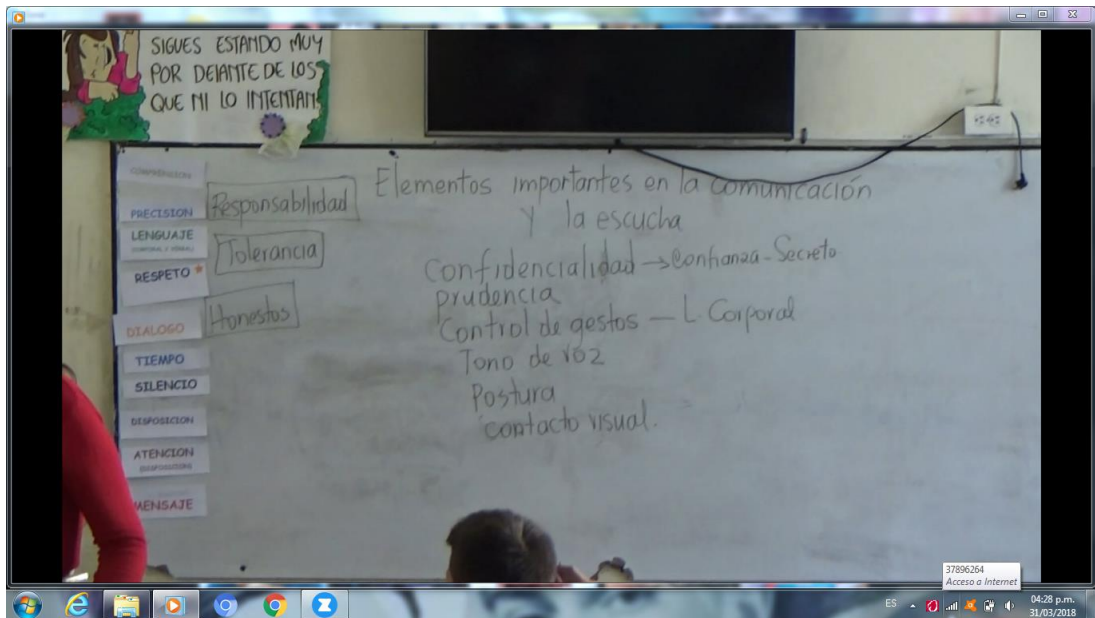 SIGUES ESTANDO MUY
POR DELANTE DE LOS
QUE NI LO INTENTAN
COMPRENSION
PRECISION
LENGUAJE
(CORPORAL / VERBAL)
RESPETO
DIALOGO
TIEMPO
SILENCIO
DISPOSICION
ATENCION
(DISPOSICION)
MENSAJE
Responsabilidad
Tolerancia
Honestos
Elementos importantes en la comunicación
y la escucha
Confidencialidad → Confianza - Secreto
prudencia
Control de gestos — L. Corporal
Tono de voz
Postura
contacto visual.
37896264
Acceso a Internet
ES
04:28 p.m.
31/03/2018